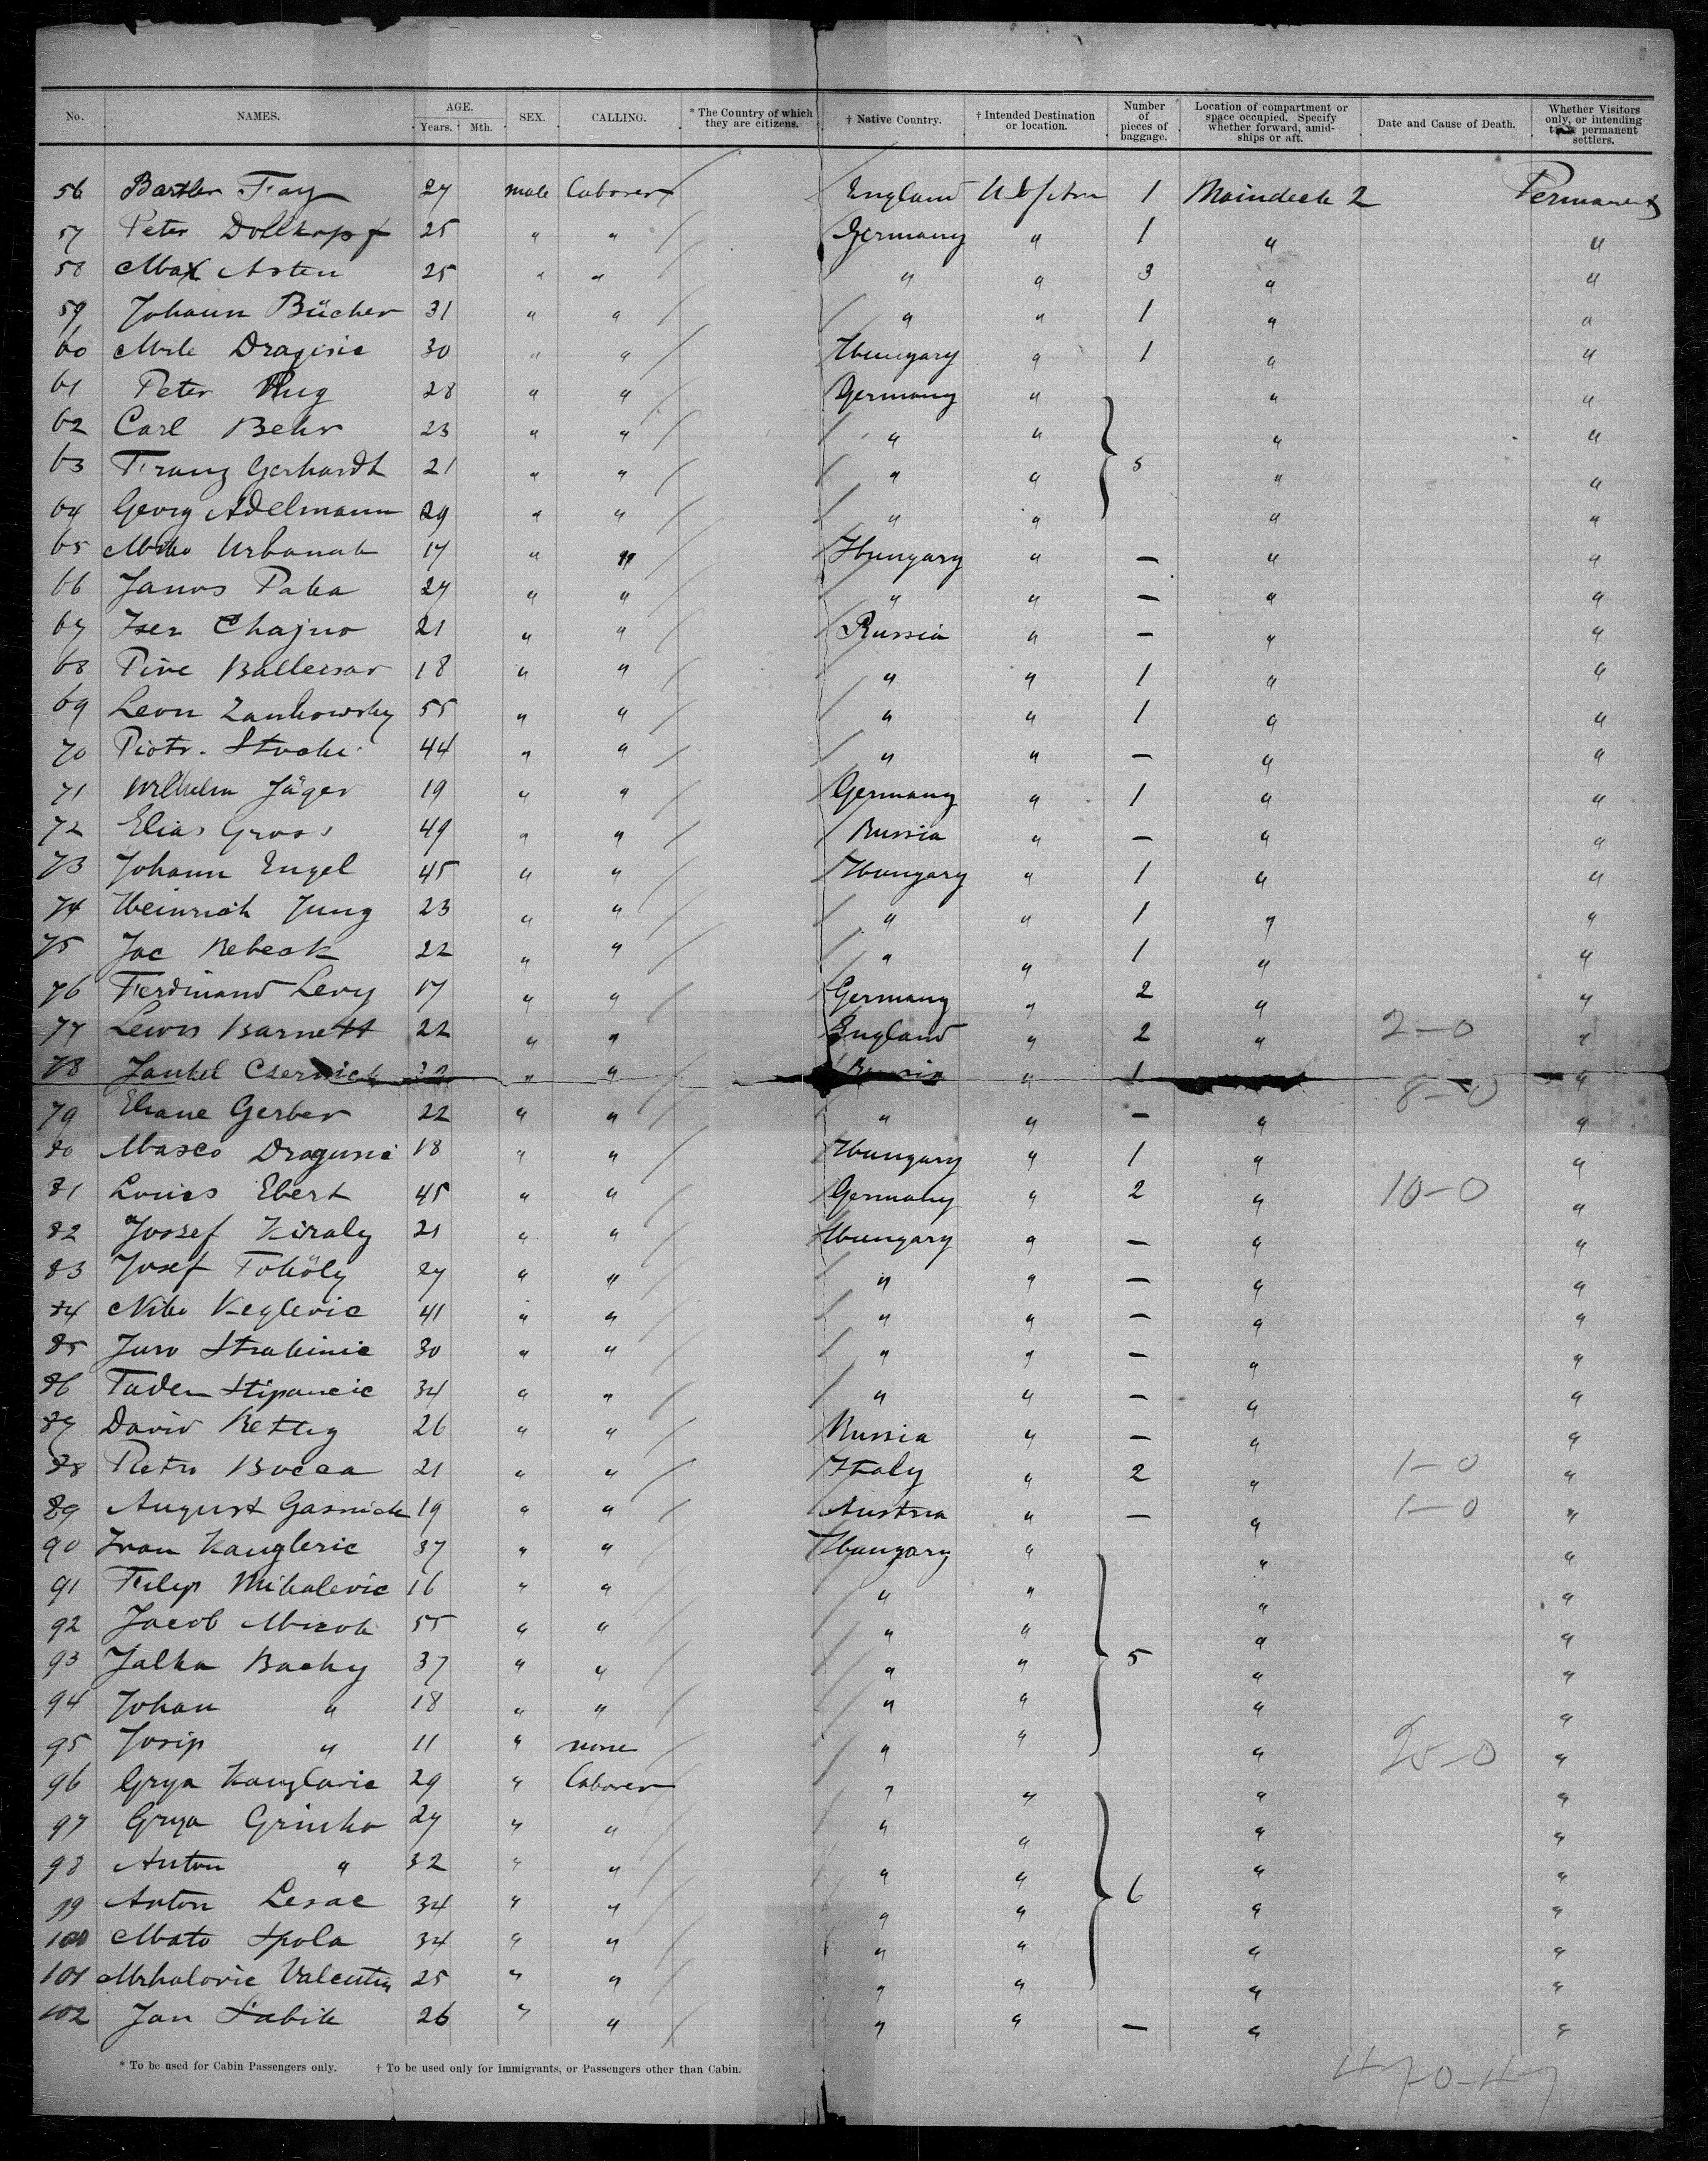 No. NAMES. AGE. Years. Mth. SEX. CALLING. * The Country of which they are citizens. † Native Country. † Intended Destination or location. Number of pieces of baggage. Location of compartment or space occupied. Specify whether forward, amidships or aft. Date and Cause of Death. Whether Visitors only, or intending permanent settlers.
56 Fay 27 male laborer England 1 Maindeck 2 Permanent
57 Peter Dollkopf 25 " " Germany " 1 " "
58 Max Asten 25 " " " " 3 " "
59 Johann Bücher 31 " " " " 1 " "
60 Mile Draginic 30 " " Hungary " 1 " "
61 Peter 28 " " Germany " " "
62 Carl Behr 23 " " " " " "
63 Franz Gerhardt 21 " " " " 5 " "
64 Georg Adelmann 29 " " " " " "
65 Urbanak 17 " " Hungary " — " "
66 Janos Paka 27 " " " " — " "
67 Iser Chajno 21 " " Russia " — " "
68 18 " " " " 1 " "
69 Leon Zankowsky 55 " " " " 1 " "
70 Piotr 44 " " " " — " "
71 Wilhelm Jäger 19 " " Germany " 1 " "
72 Elias Gross 49 " " Russia " — " "
73 Johann Engel 45 " " Hungary " 1 " "
74 Heinrich Jung 23 " " " " 1 " "
75 Jac Rebeck 22 " " " " 1 " "
76 Ferdinand Levy 17 " " Germany " 2 " "
77 Lewis Barnett 22 " " England " 2 " 2-0 "
78 Jankel " " Russia " 1 8-0 "
79 Gerber 22 " " " " — " "
80 Masco Dragusic 18 " " Hungary " 1 " "
81 Louis Ebert 45 " " Germany " 2 " 10-0 "
82 Jossef Kiraly 21 " " Hungary " — " "
83 Josef Toköly 27 " " " " — " "
84 Niko Keglevic 41 " " " " — " "
85 Juro Strakinic 30 " " " " — " "
86 Tader Stipancic 34 " " " " — " "
87 David Rettig 26 " " Russia " — " "
88 Pietro Bocca 21 " " Italy " 2 " 1-0 "
89 August Gasnick 19 " " Austria " — " 1-0 "
90 Ivan Kangleric 37 " " Hungary " " "
91 Filip Mihalevic 16 " " " " " "
92 Jacob 55 " " " " " "
93 Jalka Bachy 37 " " " " 5 " "
94 Johan " 18 " " " " " "
95 Josip " 11 " none " " " 25-0 "
96 Grya 29 " laborer " " " "
97 Grya Grinko 27 " " " " " "
98 Anton " 32 " " " " " "
99 Anton Lesac 34 " " " " 6 " "
100 Mato Spola 34 " " " " " "
101 Mihalovic Valentin 25 " " " " " "
102 Jan Sabik 26 " " " " — " "
* To be used for Cabin Passengers only. † To be used only for Immigrants, or Passengers other than Cabin.
47-0-47